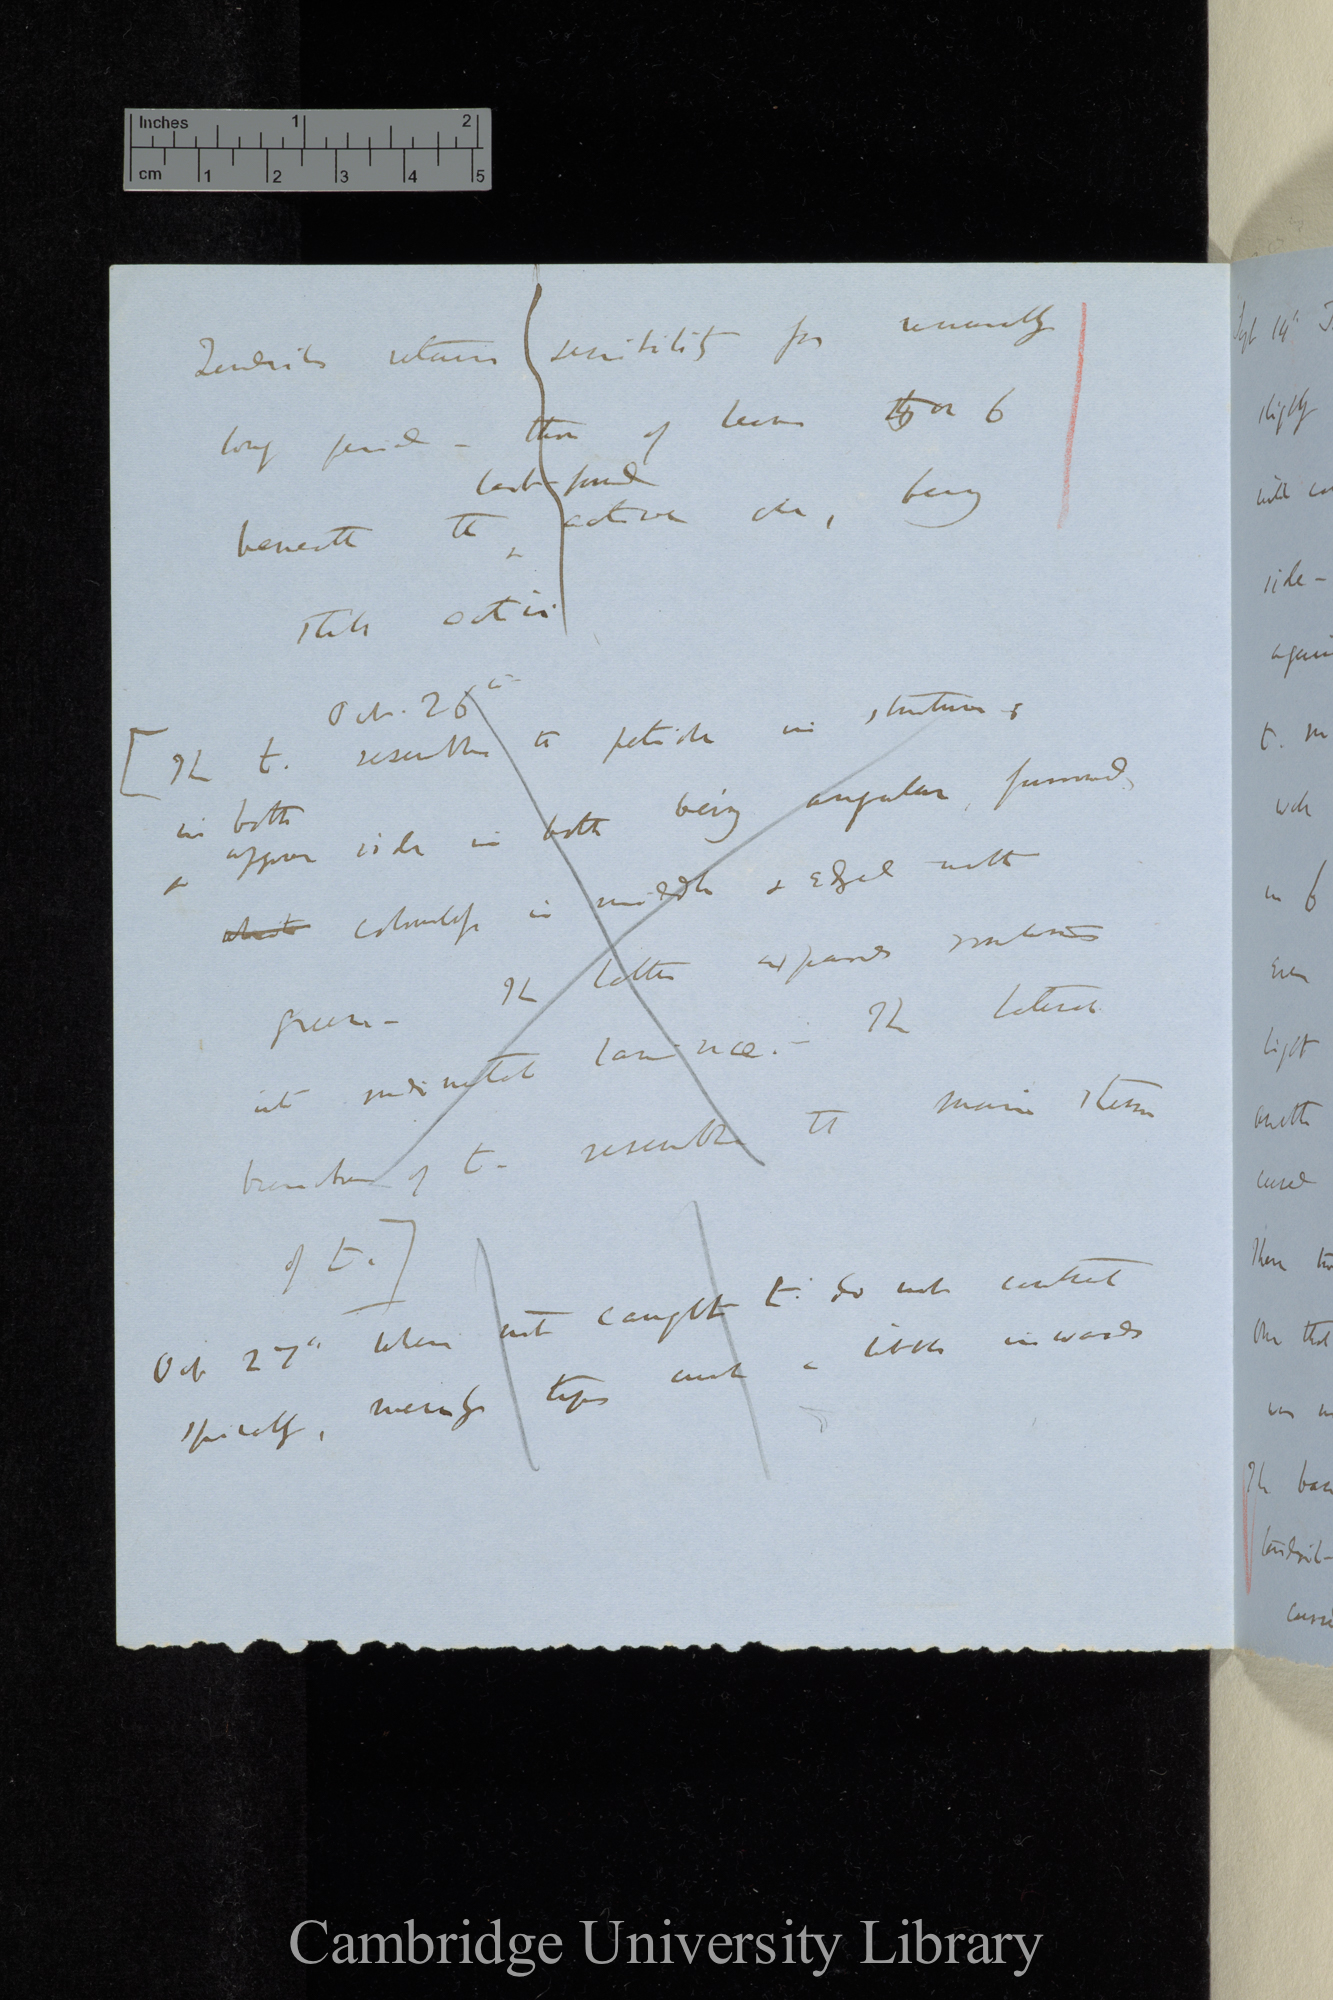 Inches 1 2
cm 1 2 3 4 5
Tendrils retain sensibility for unusually
long period — those of leaves 5 or 6
last-formed
beneath the ^ active one, being
still active
Oct. 26th
[The t. resembles the petiole in structure &
in both
^ upper side in both being angular, furrowed,
white colourless in middle & edged with
green — The latter expands sometimes
into laminae. — The lateral
branches of t. resemble the main stem
of t.]
Oct 27th When not caught t. do not contract
spirally, merely tips curl a little inwards
Sept 14th
slightly
with
side —
again
t.
in 6
Even
light
another
There
One that
The
tendril —
Cambridge University Library